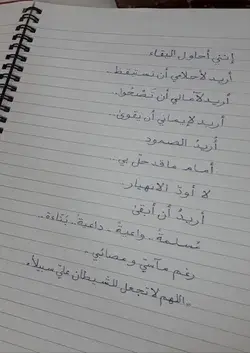 إنني أحاول البقاء
أريد لأحلامي أن تستيقظ..
أريد لآمالي أن تَصْحُوا..
أريد لإيماني أن يقوىٰ..
أريدُ الصمود
أمام ما قد حلّ بي..
لا أودّ الانهيار
أريدُ أن أبقىٰ
مُسلمةً.. واعيةً.. داعيةً.. بَنّاءة..
رغم مآسيّ ومصائبي..
-اللهم لا تجعل للشيطان عليّ سبيلاً